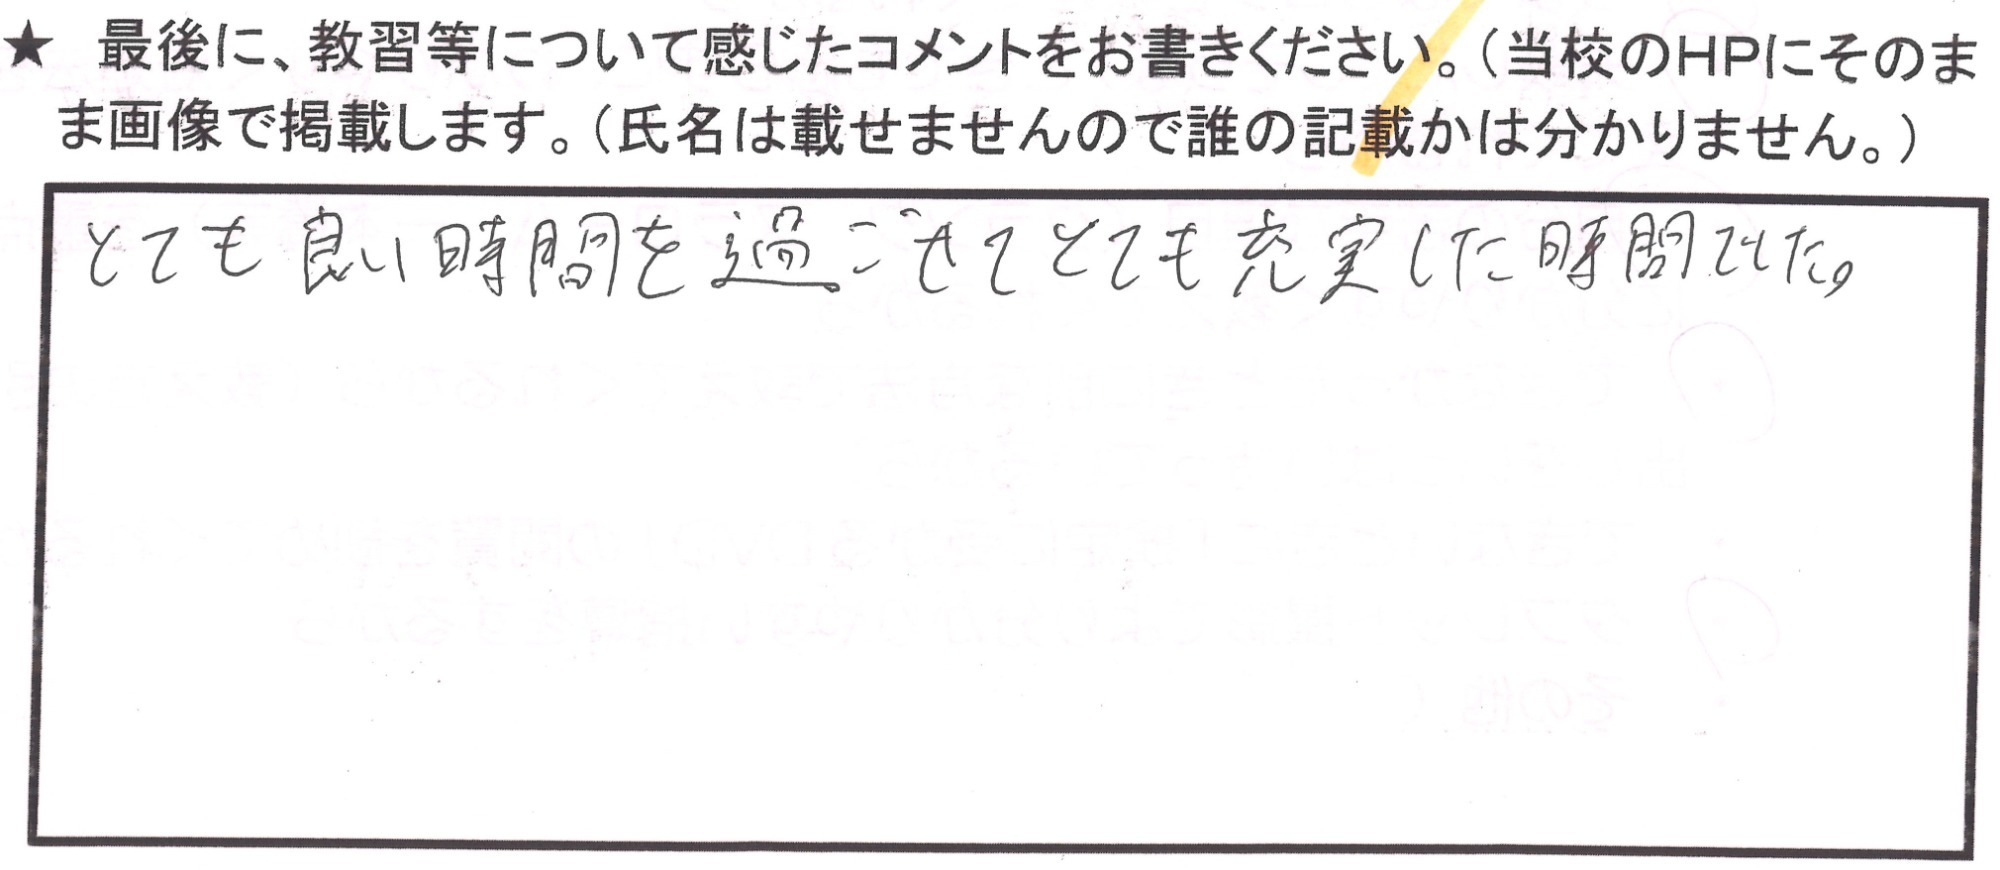 ★ 最後に、教習等について感じたコメントをお書きください。(当校のHPにそのま
ま画像で掲載します。(氏名は載せませんので誰の記載かは分かりません。)
とても良い時間を過ごせてとても充実した時間でした。